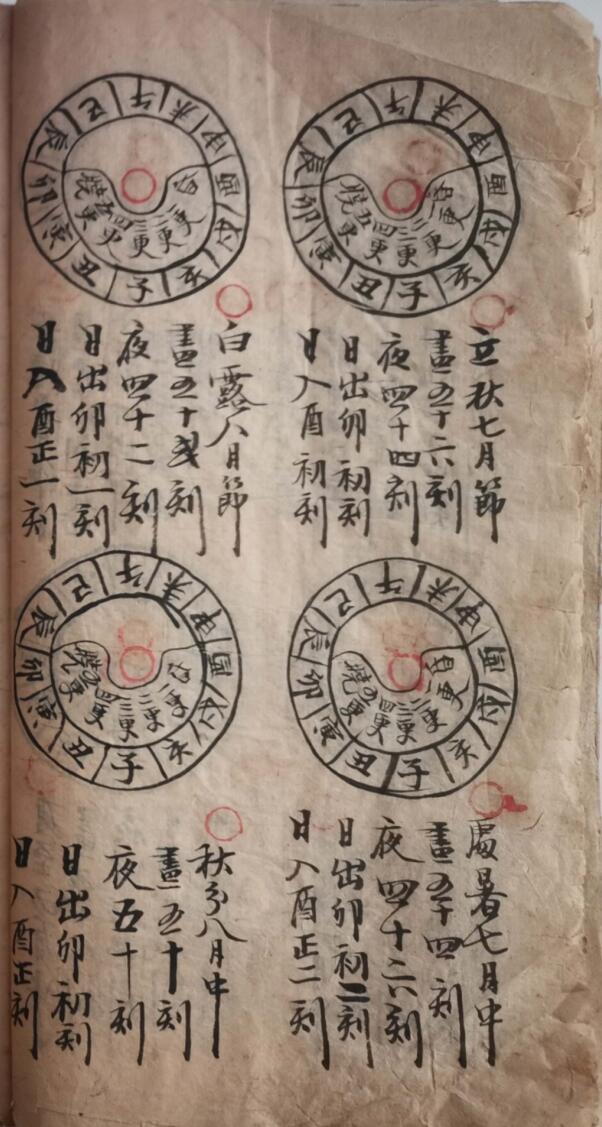 巳午未申酉戌亥子丑寅卯辰
二更三更四更五更
立秋七月節
晝五十六刻
夜四十四刻
日出卯初刻
日入酉初刻
巳午未申酉戌亥子丑寅卯辰
二更三更四更五更
白露八月節
晝五十刻
夜四十二刻
日出卯初一刻
日入酉正一刻
巳午未申酉戌亥子丑寅卯辰
二更三更四更五更
處暑七月中
晝五十四刻
夜四十六刻
日出卯初二刻
日入酉正二刻
巳午未申酉戌亥子丑寅卯辰
二更三更四更五更
秋分八月中
晝五十刻
夜五十刻
日出卯初刻
日入酉正刻